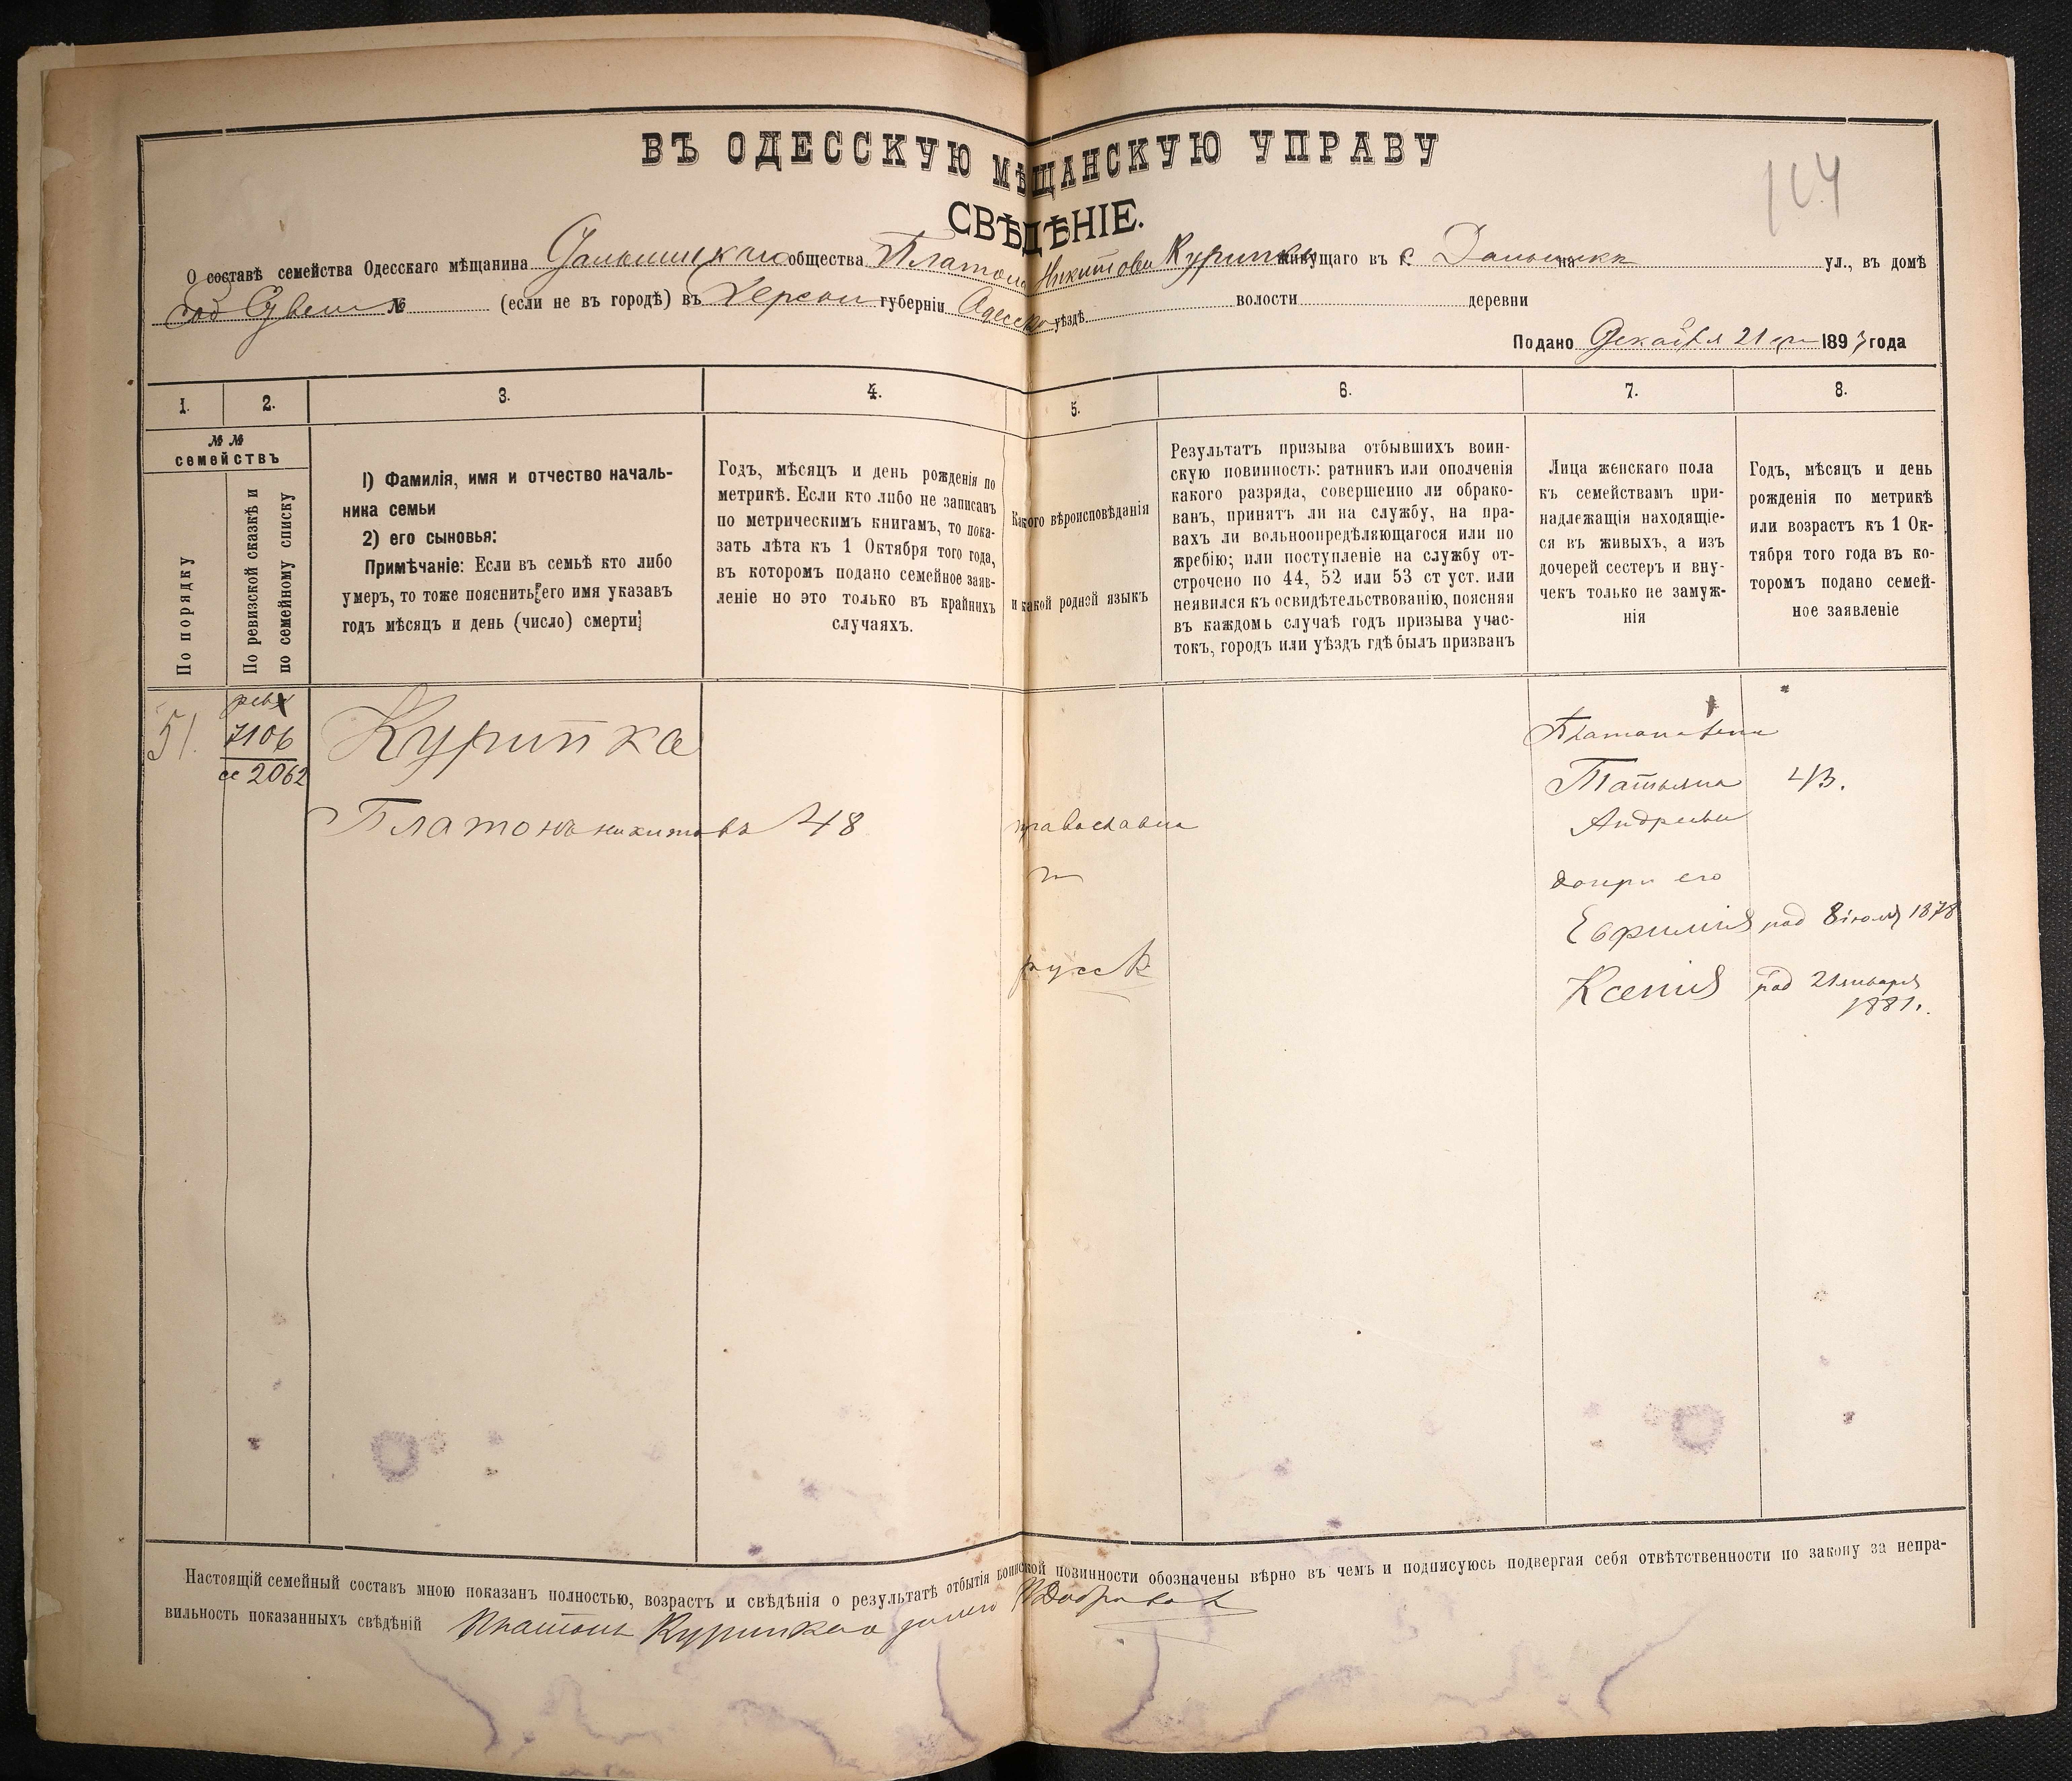 ВЪ ОДЕССКУЮ МѢЩАНСКУЮ УПРАВУ
СВѢДѢНІЕ.
О составѣ семейства Одесскаго мѣщанина общества Платона Никитова Курипки живущаго въ с. Дальникѣ на ул., въ домѣ
№ (если не въ городѣ) въ Херсон губерніи Одесско уѣздѣ волости деревни
Подано Декабря 21 1897 года
1. 2. 3. 4. 5. 6. 7. 8.
№№ семействъ
По порядку
По ревизской сказкѣ и
по семейному списку
1) Фамилія, имя и отчество началь-
ника семьи
2) его сыновья:
Примѣчаніе: Если въ семьѣ кто либо
умеръ, то тоже пояснить его имя указавъ
годъ мѣсяцъ и день (число) смерти
Годъ, мѣсяцъ и день рожденія по
метрикѣ. Если кто либо не записанъ
по метрическимъ книгамъ, то пока-
зать лѣта къ 1 Октября того года,
въ которомъ подано семейное заяв-
леніе но это только въ крайнихъ
случаяхъ.
Какого вѣроисповѣданія
и какой родной языкъ
Результатъ призыва отбывшихъ воин-
скую повинность: ратникъ или ополченія
какого разряда, совершенно ли обрако-
ванъ, принятъ ли на службу, на пра-
вахъ ли вольноопредѣляющагося или по
жребію; или поступленіе на службу от-
строчено по 44, 52 или 53 ст уст. или
неявился къ освидѣтельствованію, поясняя
въ каждомъ случаѣ годъ призыва учас-
токъ, городъ или уѣздъ гдѣ былъ призванъ
Лица женскаго пола
къ семействамъ при-
надлежащія находящіе-
ся въ живыхъ, а изъ
дочерей сестеръ и вну-
чекъ только не замуж-
нія
Годъ, мѣсяцъ и день
рожденія по метрикѣ
или возрастъ къ 1 Ок-
тября того года въ ко-
торомъ подано семей-
ное заявленіе
51. 7106 Курипка
се 2062
Платонъ Никитовъ 48 православна
русск
Татьяна 43.
Андреева
дочери его
Евфимія род 8 іюля 1878
Ксенія род 21 января
1881.
Настоящій семейный составъ мною показанъ полностью, возрастъ и свѣдѣнія о результатѣ отбытія воинской повинности обозначены вѣрно въ чемъ и подписуюсь подвергая себя отвѣтственности по закону за непра-
вильность показанныхъ свѣдѣній Платонъ Курипка